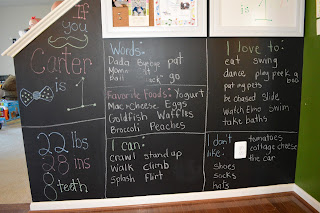 If
you
Carter
is
1
22 lbs
28 ins
8 teeth
Words:
Dada Byebye pat
Mama
Ball sock go
Favorite Foods: Yogurt
Mac+cheese Eggs
Goldfish Waffles
Broccoli Peaches
I can:
crawl stand up
walk climb
splash flirt
I love to:
eat swing
dance play peek a
boo
pat my pets
be chased slide
Watch Elmo swim
take baths
I don't
like:
shoes
socks
hats
tomatoes
cottage cheese
the car